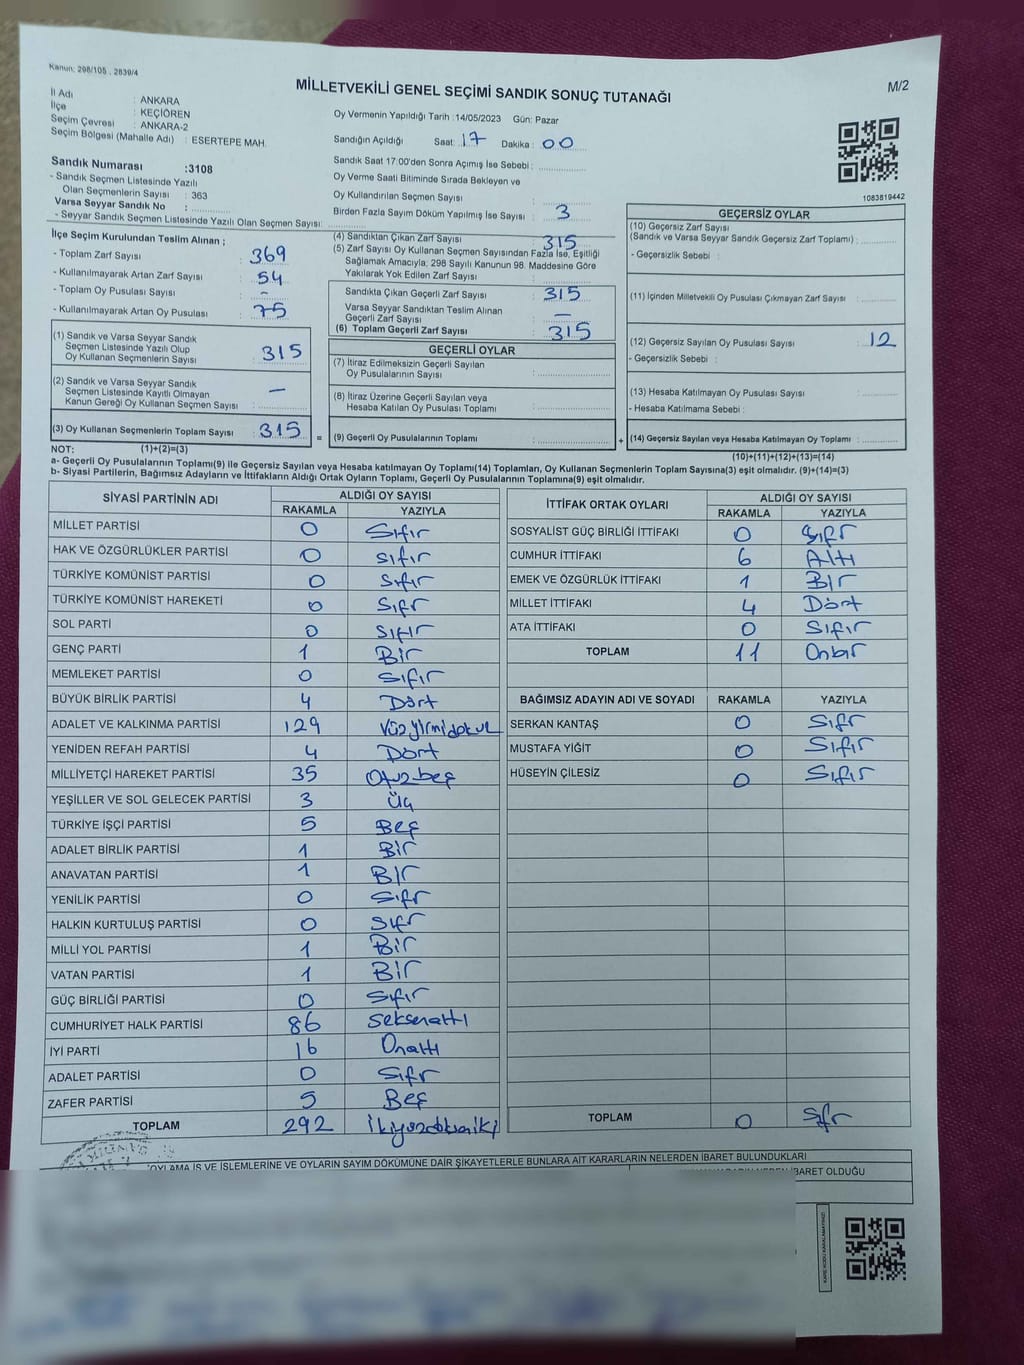 Kanun: 298/105 , 2839/4
MİLLETVEKİLİ GENEL SEÇİMİ SANDIK SONUÇ TUTANAĞI
M/2
İl Adı : ANKARA
İlçe : KEÇİÖREN
Seçim Çevresi : ANKARA-2
Seçim Bölgesi (Mahalle Adı) : ESERTEPE MAH.
Sandık Numarası :3108
- Sandık Seçmen Listesinde Yazılı
Olan Seçmenlerin Sayısı : 363
Varsa Seyyar Sandık No :
- Seyyar Sandık Seçmen Listesinde Yazılı Olan Seçmen Sayısı:
Oy Vermenin Yapıldığı Tarih :14/05/2023 Gün: Pazar
Sandığın Açıldığı Saat: 17 Dakika : 00
Sandık Saat 17:00'den Sonra Açımış İse Sebebi :
Oy Verme Saati Bitiminde Sırada Bekleyen ve
Oy Kullandırılan Seçmen Sayısı :
Birden Fazla Sayım Döküm Yapılmış İse Sayısı : 3
1083819442
İlçe Seçim Kurulundan Teslim Alınan ;
- Toplam Zarf Sayısı : 369
- Kullanılmayarak Artan Zarf Sayısı : 54
- Toplam Oy Pusulası Sayısı : -
- Kullanılmayarak Artan Oy Pusulası : 75
(1) Sandık ve Varsa Seyyar Sandık
Seçmen Listesinde Yazılı Olup
Oy Kullanan Seçmenlerin Sayısı : 315
(2) Sandık ve Varsa Seyyar Sandık
Seçmen Listesinde Kayıtlı Olmayan
Kanun Gereği Oy Kullanan Seçmen Sayısı : -
(3) Oy Kullanan Seçmenlerin Toplam Sayısı : 315
(1)+(2)=(3)
(4) Sandıktan Çıkan Zarf Sayısı : 315
(5) Zarf Sayısı Oy Kullanan Seçmen Sayısından Fazla İse, Eşitliği
Sağlamak Amacıyla, 298 Sayılı Kanunun 98. Maddesine Göre
Yakılarak Yok Edilen Zarf Sayısı :
Sandıkta Çıkan Geçerli Zarf Sayısı : 315
Varsa Seyyar Sandıktan Teslim Alınan
Geçerli Zarf Sayısı : -
(6) Toplam Geçerli Zarf Sayısı : 315
GEÇERLİ OYLAR
(7) İtiraz Edilmeksizin Geçerli Sayılan
Oy Pusulalarının Sayısı :
(8) İtiraz Üzerine Geçerli Sayılan veya
Hesaba Katılan Oy Pusulası Toplamı :
= (9) Geçerli Oy Pusulalarının Toplamı :
GEÇERSİZ OYLAR
(10) Geçersiz Zarf Sayısı
(Sandık ve Varsa Seyyar Sandık Geçersiz Zarf Toplamı) :
- Geçersizlik Sebebi :
(11) İçinden Milletvekili Oy Pusulası Çıkmayan Zarf Sayısı :
(12) Geçersiz Sayılan Oy Pusulası Sayısı : 12
- Geçersizlik Sebebi :
(13) Hesaba Katılmayan Oy Pusulası Sayısı :
- Hesaba Katılmama Sebebi :
+ (14) Geçersiz Sayılan veya Hesaba Katılmayan Oy Toplamı :
(10)+(11)+(12)+(13)=(14)
NOT:
a- Geçerli Oy Pusulalarının Toplamı(9) ile Geçersiz Sayılan veya Hesaba katılmayan Oy Toplamı(14) Toplamları, Oy Kullanan Seçmenlerin Toplam Sayısına(3) eşit olmalıdır. (9)+(14)=(3)
b- Siyasi Partilerin, Bağımsız Adayların ve İttifakların Aldığı Ortak Oyların Toplamı, Geçerli Oy Pusulalarının Toplamına(9) eşit olmalıdır.
SİYASİ PARTİNİN ADI ALDIĞI OY SAYISI
RAKAMLA YAZIYLA
MİLLET PARTİSİ 0 Sıfır
HAK VE ÖZGÜRLÜKLER PARTİSİ 0 sıfır
TÜRKİYE KOMÜNİST PARTİSİ 0 Sıfır
TÜRKİYE KOMÜNİST HAREKETİ 0 Sıfr
SOL PARTİ 0 Sıfır
GENÇ PARTİ 1 Bir
MEMLEKET PARTİSİ 0 Sıfır
BÜYÜK BİRLİK PARTİSİ 4 Dört
ADALET VE KALKINMA PARTİSİ 129 Yüzyirmidokuz
YENİDEN REFAH PARTİSİ 4 Dört
MİLLİYETÇİ HAREKET PARTİSİ 35 Otuzbeş
YEŞİLLER VE SOL GELECEK PARTİSİ 3 Üç
TÜRKİYE İŞÇİ PARTİSİ 5 Beş
ADALET BİRLİK PARTİSİ 1 Bir
ANAVATAN PARTİSİ 1 Bir
YENİLİK PARTİSİ 0 Sıfr
HALKIN KURTULUŞ PARTİSİ 0 Sıfr
MİLLİ YOL PARTİSİ 1 Bir
VATAN PARTİSİ 1 Bir
GÜÇ BİRLİĞİ PARTİSİ 0 Sıfır
CUMHURİYET HALK PARTİSİ 86 Seksenaltı
İYİ PARTİ 16 Onaltı
ADALET PARTİSİ 0 Sıfr
ZAFER PARTİSİ 5 Beş
TOPLAM 292 ikiyüzdoksaniki
İTTİFAK ORTAK OYLARI ALDIĞI OY SAYISI
RAKAMLA YAZIYLA
SOSYALİST GÜÇ BİRLİĞİ İTTİFAKI 0 Sıfr
CUMHUR İTTİFAKI 6 Altı
EMEK VE ÖZGÜRLÜK İTTİFAKI 1 Bir
MİLLET İTTİFAKI 4 Dört
ATA İTTİFAKI 0 Sıfır
TOPLAM 11 Onbir
BAĞIMSIZ ADAYIN ADI VE SOYADI RAKAMLA YAZIYLA
SERKAN KANTAŞ 0 Sıfr
MUSTAFA YİĞİT 0 Sıfır
HÜSEYİN ÇİLESİZ 0 Sıfır
TOPLAM 0 Sıfr
OYLAMA İŞ VE İŞLEMLERİNE VE OYLARIN SAYIM DÖKÜMÜNE DAİR ŞİKAYETLERLE BUNLARA AİT KARARLARIN NELERDEN İBARET BULUNDUKLARI
İBARET OLDUĞU
KARE KODU KARALAMAYINIZ!